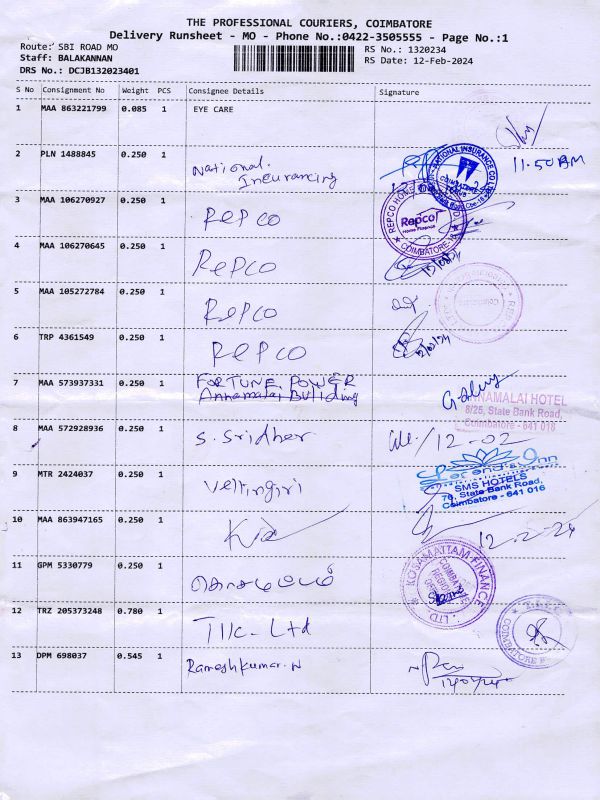 THE PROFESSIONAL COURIERS, COIMBATORE
Delivery Runsheet - MO - Phone No.:0422-3505555 - Page No.:1
Route: SBI ROAD MO
Staff: BALAKANNAN
DRS No.: DCJB132023401
RS No.: 1320234
RS Date: 12-Feb-2024
S No Consignment No Weight PCS Consignee Details Signature
1 MAA 863221799 0.085 1 EYE CARE
2 PLN 1488845 0.250 1 National. Insurancing 11.50 AM
NATIONAL INSURANCE CO LTD
3 MAA 106270927 0.250 1 REPCO
REPCO HOME
Repco
Home Finance
COIMBATORE
4 MAA 106270645 0.250 1 REPCO
5 MAA 105272784 0.250 1 REPCO
6 TRP 4361549 0.250 1 REPCO
7 MAA 573937331 0.250 1 FORTUNE POWER
Annamalai Building
NAMALAI HOTEL
8/25, State Bank Road,
Coimbatore - 641 018
8 MAA 572928936 0.250 1 S. Sridher 12-02
9 MTR 2424037 0.250 1 Vellingiri
Inn
SMS HOTELS
State Bank Road,
Coimbatore - 641 018
10 MAA 863947165 0.250 1 12-2-24
11 GPM 5330779 0.250 1
KOSAMATTAM FINANCE LTD
12 TRZ 205373248 0.780 1 TIIC-Ltd
COIMBATORE
13 DPM 698037 0.545 1 Rameshkumar.N